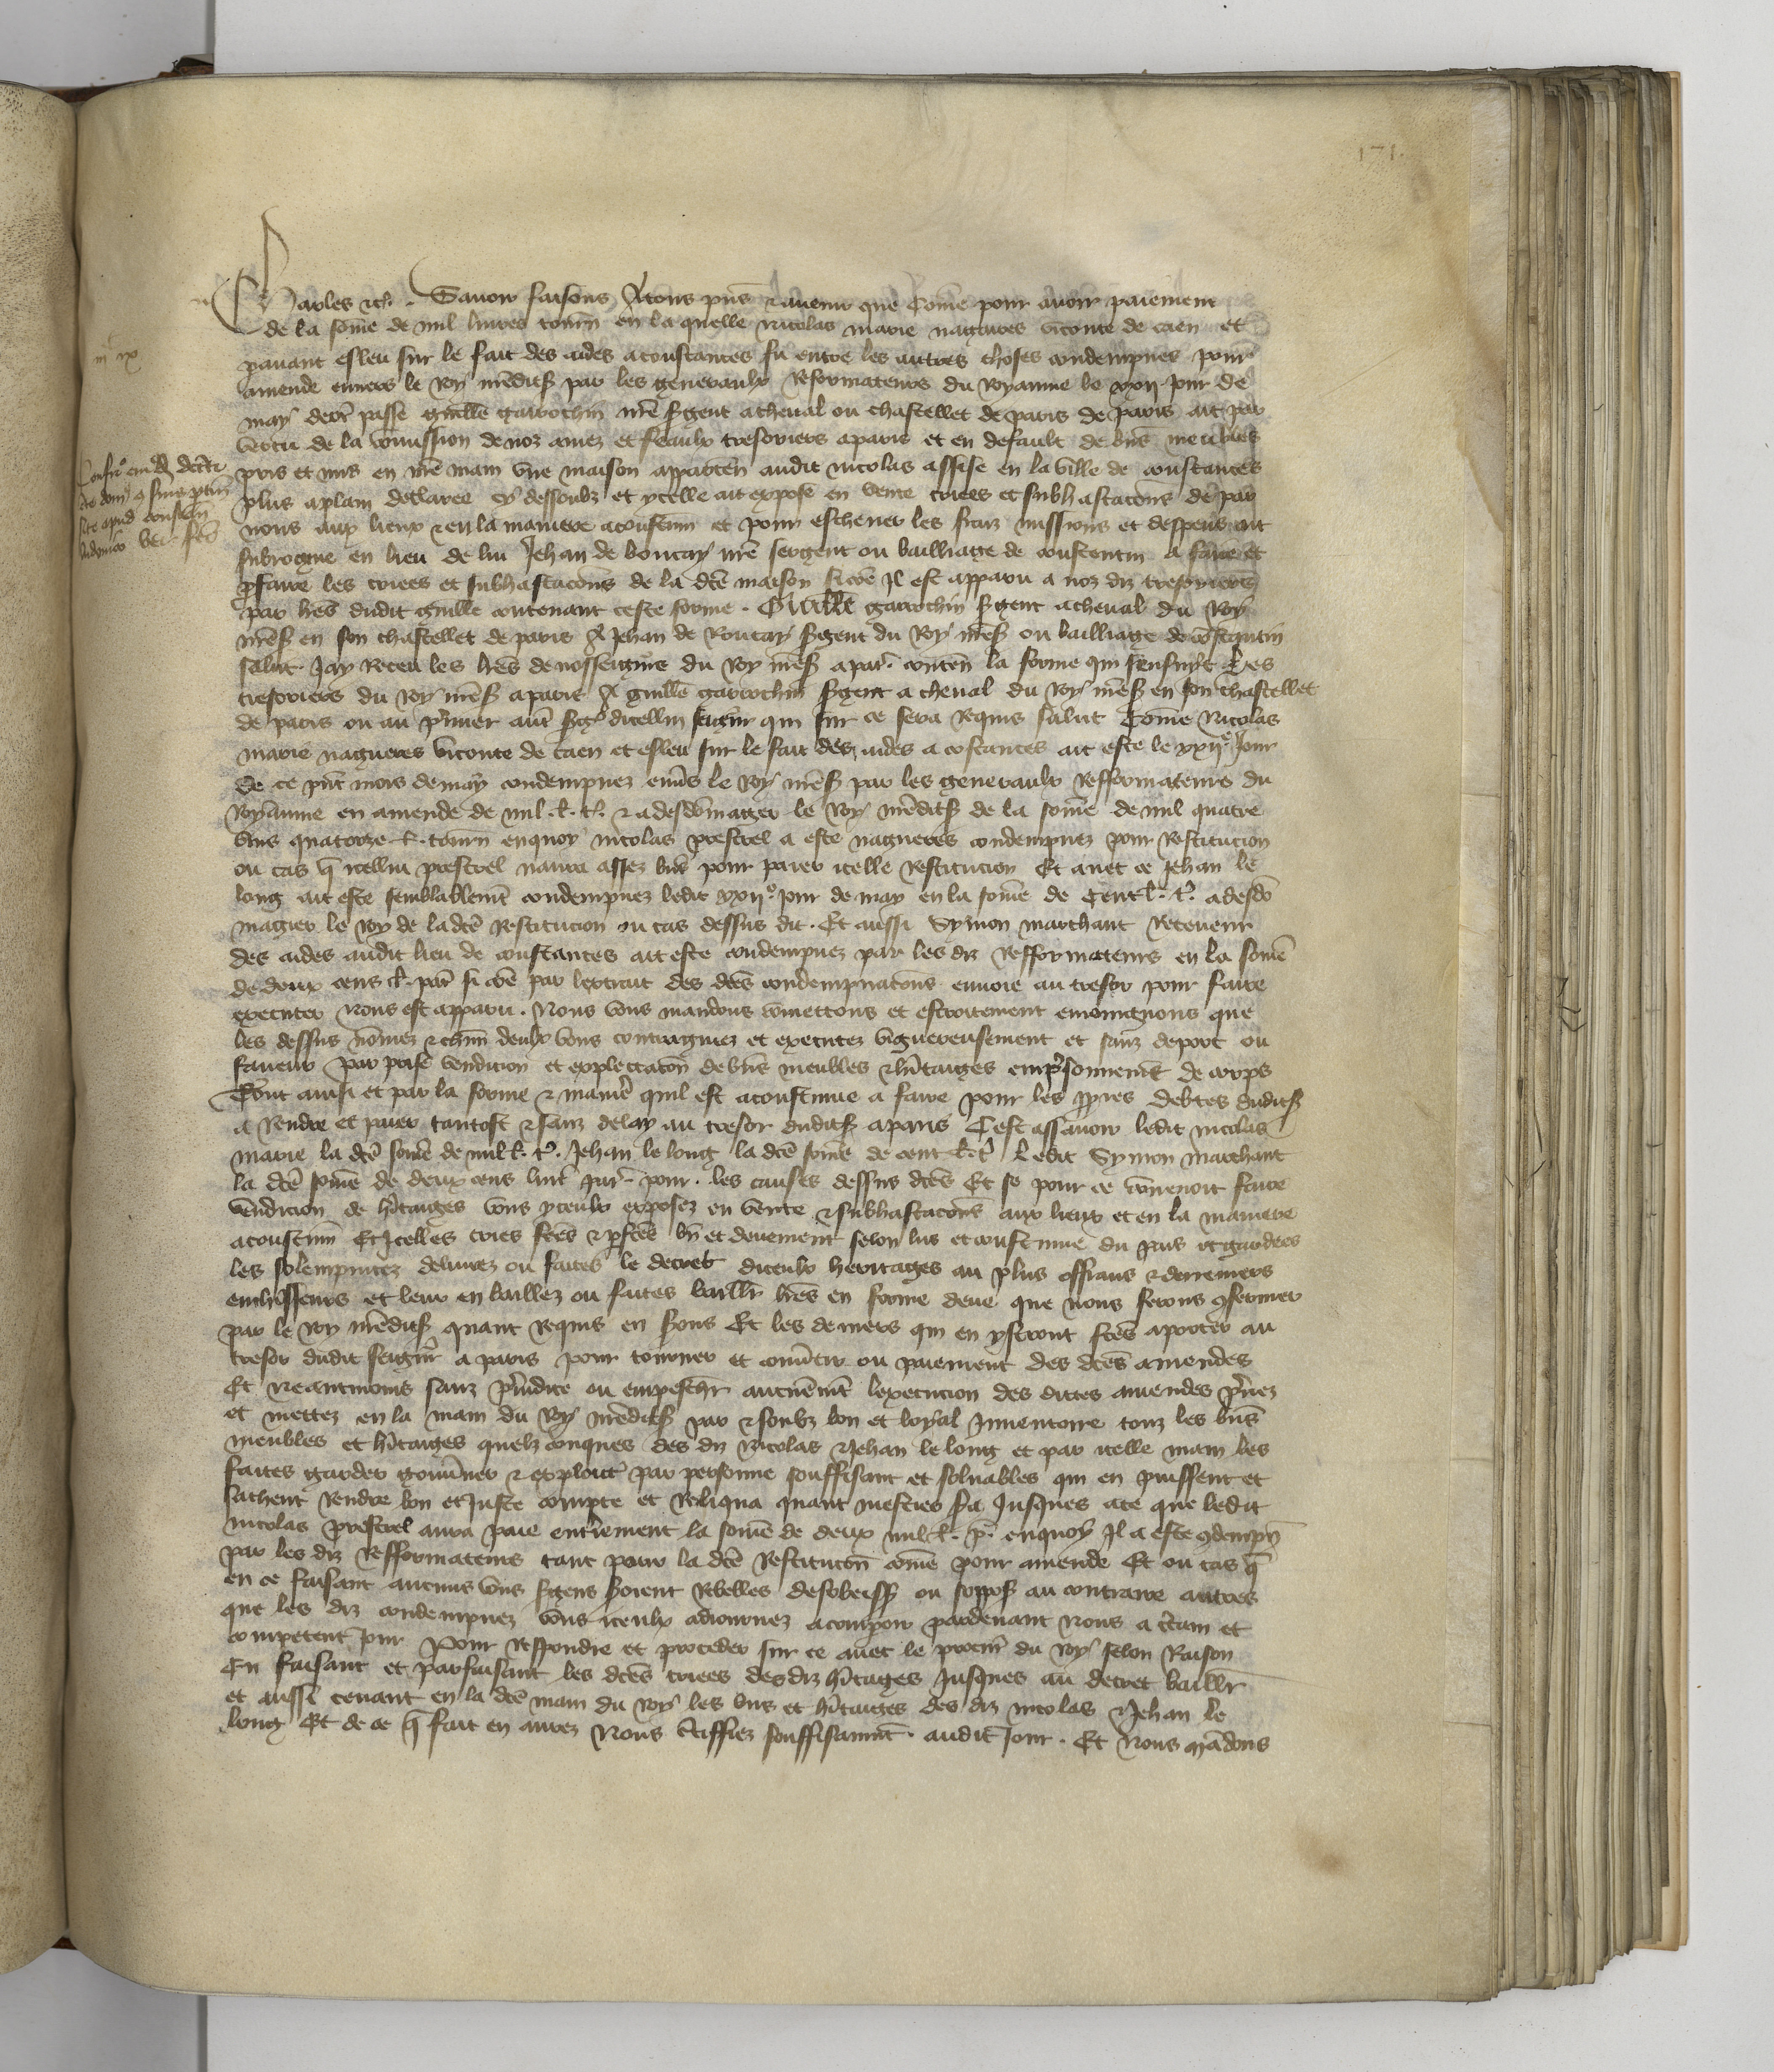 171.
Charles etc. Savoir faisons a tous pns̄ & avenir que com̄e pour avoir paiement
de la som̄e de mil livres tourn̄ en la quelle Nicolas marie nagueres viconte de caen et
pavant esleu sur le fait des aides a coustances fu entre les autres choses condempnes pour
amende envers le Roy nr̄edits̄ par les generaulx Reformateurs du Royaume le xxii jour de
may derr̄ passe guill̄e garrochin nr̄e s̄gent a cheval ou chastellet de paris de paris ait par
vertu de la com̄ission de noz amez et feaulx tresoriers a paris et en default de biēs meubles
pris et mis en nr̄e main une maison apparten̄ audit nicolas assise en la ville de coustances
plus a plain declaree cy dessoubz et ycelle ait expose en vente criees et subhastacōns de par
nous aux lieux & en la maniere acoustum̄ et pour eschever les fraiz missions et despens ait
subrogue en lieu de lui Jehan de Roncay nr̄e sergent ou bailliage de coustentin a faire et
p̄faire les criees et subhastacōns de la dc̄e maison si cōe Il est apparu a noz diz tresoriers
par lr̄es dudit guill̄e contenant ceste forme. Guill̄e garrochin s̄gent a cheval du Roy
nr̄es̄ en son chastellet de paris A Jehan de Roncay s̄gent du Roy nr̄es̄ ou bailliage de cōstentin
salut Jay receu les lr̄es de nosseign̄rs du Roy nr̄es̄ a par̄ conten̄ la forme qui sensuyt Les
tresoriers du Roy nr̄es̄ a paris A guill̄e garrochin s̄gent a cheval du Roy nr̄es̄ en son chastellet
de paris ou au p̄mier aut̄ s̄gē dicellui seign̄r qui sur ce sera requis salut Com̄e Nicolas
marie nagueres viconte de caen et esleu sur le fait des aides a costances ait este le xxii.e Jour
de ce pn̄t mois de may condempnez env̄s le Roy nr̄es̄ par les generaulx Refformateurs du
Royaume en amende de mil .l. t. & a desdom̄agier le Roy nr̄edits̄ de la som̄e de mil quatre
vins quatorze .l. tourn̄ en quoy nicolas prestrel a este nagueres condempnez pour Restitucion
ou cas q̄ icellui prestrel naura assez biēs pour paier icelle Restitucion Et avec ce Jehan le
long ait este semblablem̄t condempnez ledit xxii.e jour de may en la som̄e de Cent l. t. a desdo
magier le Roy de ladc̄e Restitucion ou cas dessus dit. Et aussi Symon marchant Receveur
des aides audit lieu de coustances ait este condempnez par les diz Refformateurs en la som̄e
de deux cens l. par̄ si cōe par lextrait des dc̄es condempnacōns envoie au tresor pour faire
executer nous est apparu. Nous vous mandons com̄ettons et estroitement enioingnons que
les dessus nōmez & chūn deulx vous contraignez et executez viguereusement et sanz deport ou
faveur par prise vendicion et explectacōn de biēs meubles & hīt̄aiges emp̄sonnem̄t de corps
Tout ainsi et par la forme & manie᷑ quil est acoustume a faire pour les p̄pres debtes dudits̄
a Rendre et paier tantost & sanz delay au tresor dudits̄ a paris Cest assavoir ledit nicolas
marie la dc̄e som̄e de mil l. t. Jehan le long la dc̄e som̄e de cent l. t. Ledit Symon marchant
la dc̄e som̄e de deux cens livr̄ par̄ pour les causes dessus dc̄es Et se pour ce cōvenoit faire
vendicion de hīt̄aiges vous yceulx exposez en vente & subhastacōns aux lieux et en la maniere
acoustum̄ Et Icelles criees fc̄es & pfc̄es bn̄ et deuement selon lus et coustume du pais et gardees
les solempnitez delivrez ou faites le decret diceulx heritages au plus offrans & derreniers
encherisseurs et leur en baillez ou faites baill̄r lr̄es en forme deue que nous ferons ꝯfermer
par le Roy nr̄edits̄ quant requis en s̄ons Et les deniers qui en ysteront fc̄es aporter au
tresor dudit seign̄r a paris pour tourner et cōv̄tir ou paiement des dc̄es amendes
Et neantmoins sanz p̄iudice ou empeschr̄ aucunem̄t lexecucion des dittes amendes p̄nez
et mettez en la main du Roy nr̄edits̄ par & soubz bon et loyal Inventoire touz les biēs
meubles et hīt̄aiges quelzconques des diz Nicolas & Jehan le long et par icelle main les
faites garder gouv̄ner & exploitr̄ par personne souffisant et solvables qui en puissent et
sachent Rendre bon et Juste compte et Reliqua quant mestier s̄a Jusques ace que ledit
nicolas prestrel aura paie entierement la som̄e de deux mil l. p. en quoy Il a este ꝯdempn̄
par les diz Refformateurs tant pour la dc̄e Restitucōn com̄e pour amende Et ou cas q̄
en ce faisant aucuns vous s̄gens soient Rebelles desobeiss̄ ou soppos̄ au contraire autres
que les diz condempnez vous iceulx adiournez a comparoir pardevant Nous a c̄tain et
competent Jour Pour respondre et proceder sur ce avec le procur̄ du Roy selon Raison
En faisant et parfaisant les dc̄es criees desdiz hīt̄ages Jusques au decret baill̄r
et aussi tenant en la dc̄e main du Roy les biēs et hīt̄aiges des diz nicolas & Jehan le
long Et de ce q̄ fait en aurez Nous c̄tiffiez souffisaum̄t audit Jour. Et Nous mādons